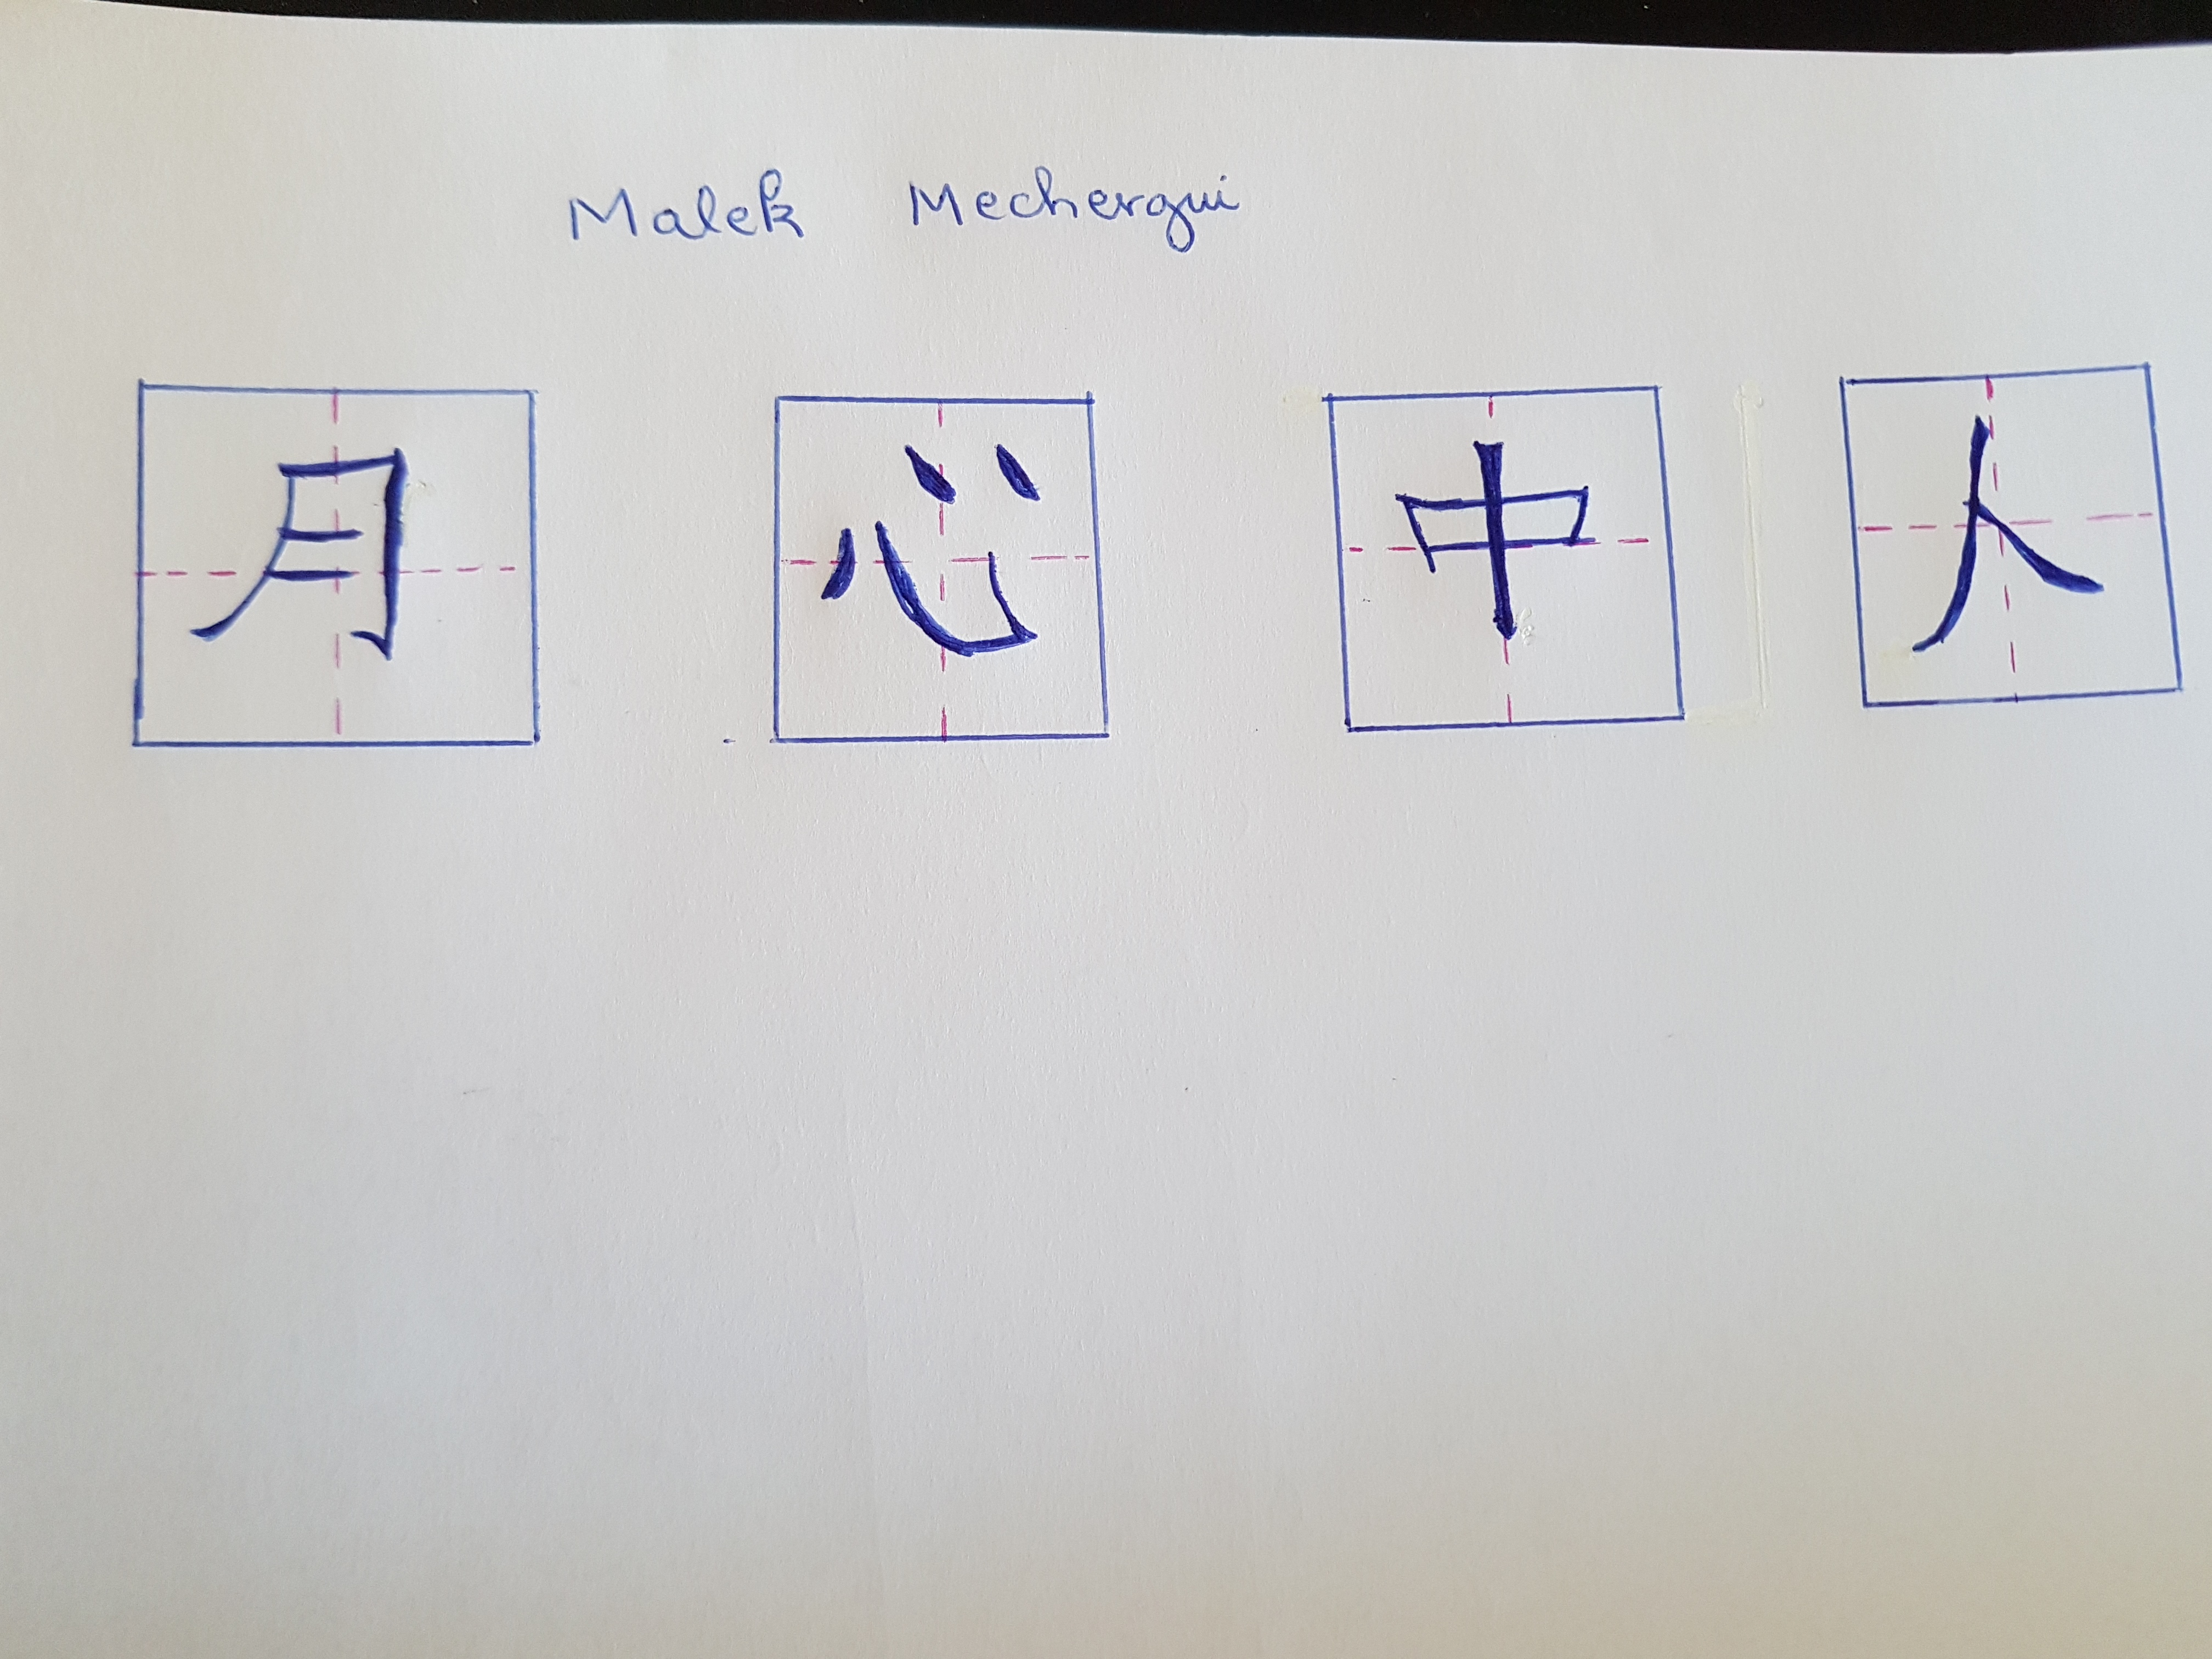 Malek Mechergui
月 心 中 人